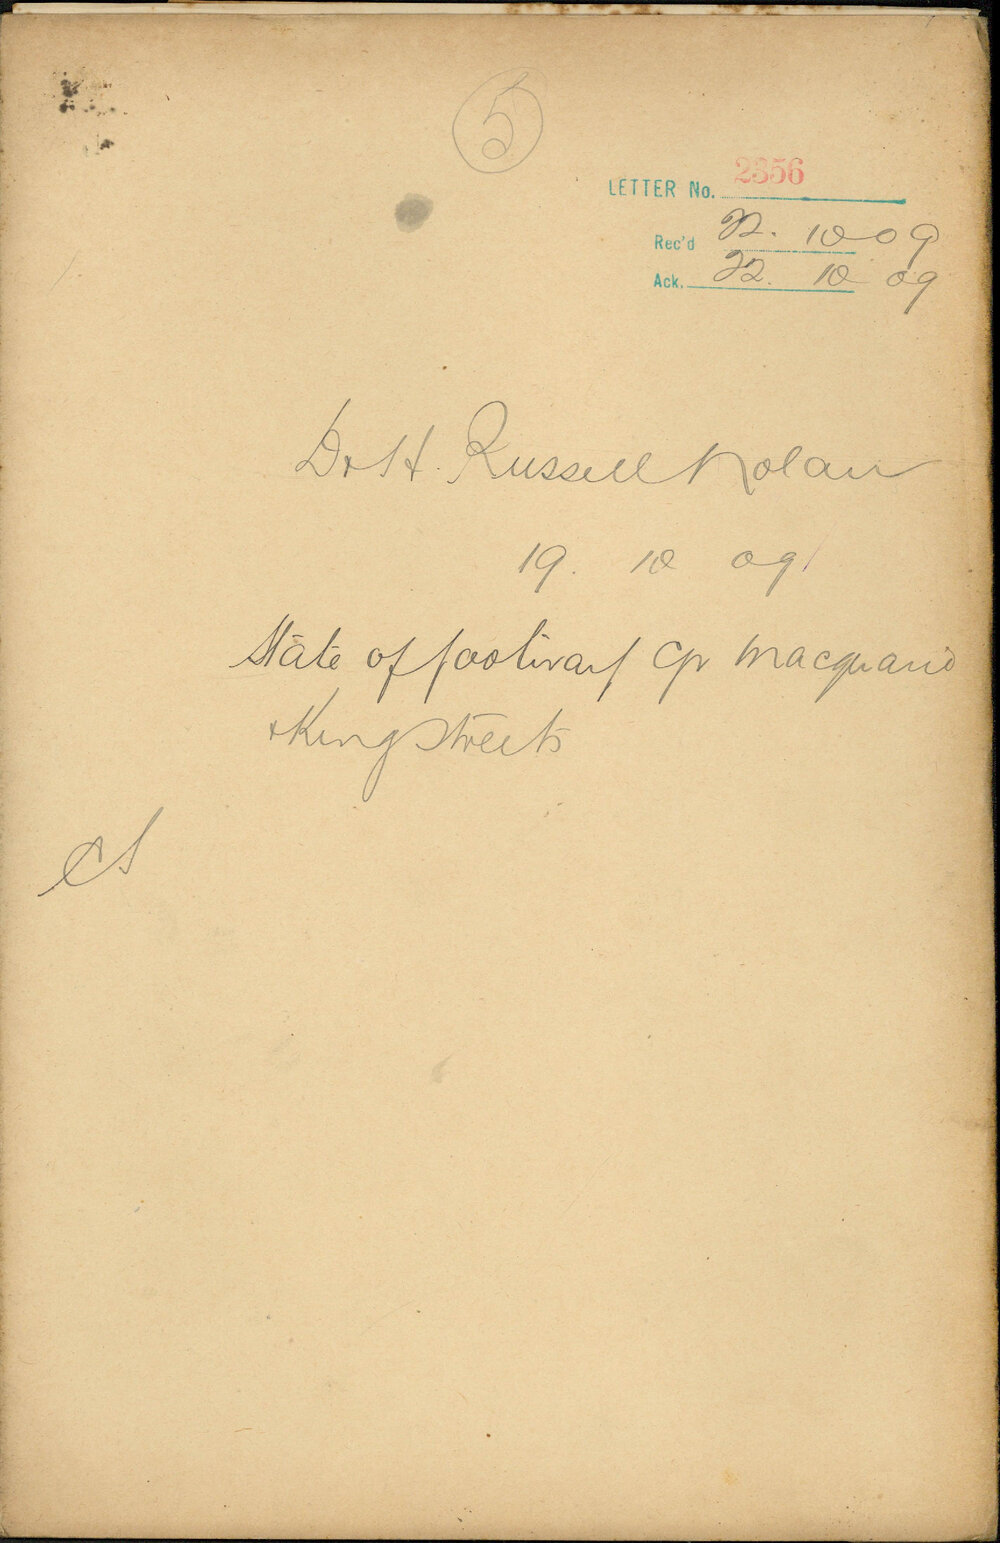 5
LETTER No. 2356
Rec'd 22. 10 09
Ack. 22. 10 09
Dr H. Russell Nolan
19. 10 09
State of footway Cr Macquarie
& King Streets
CS